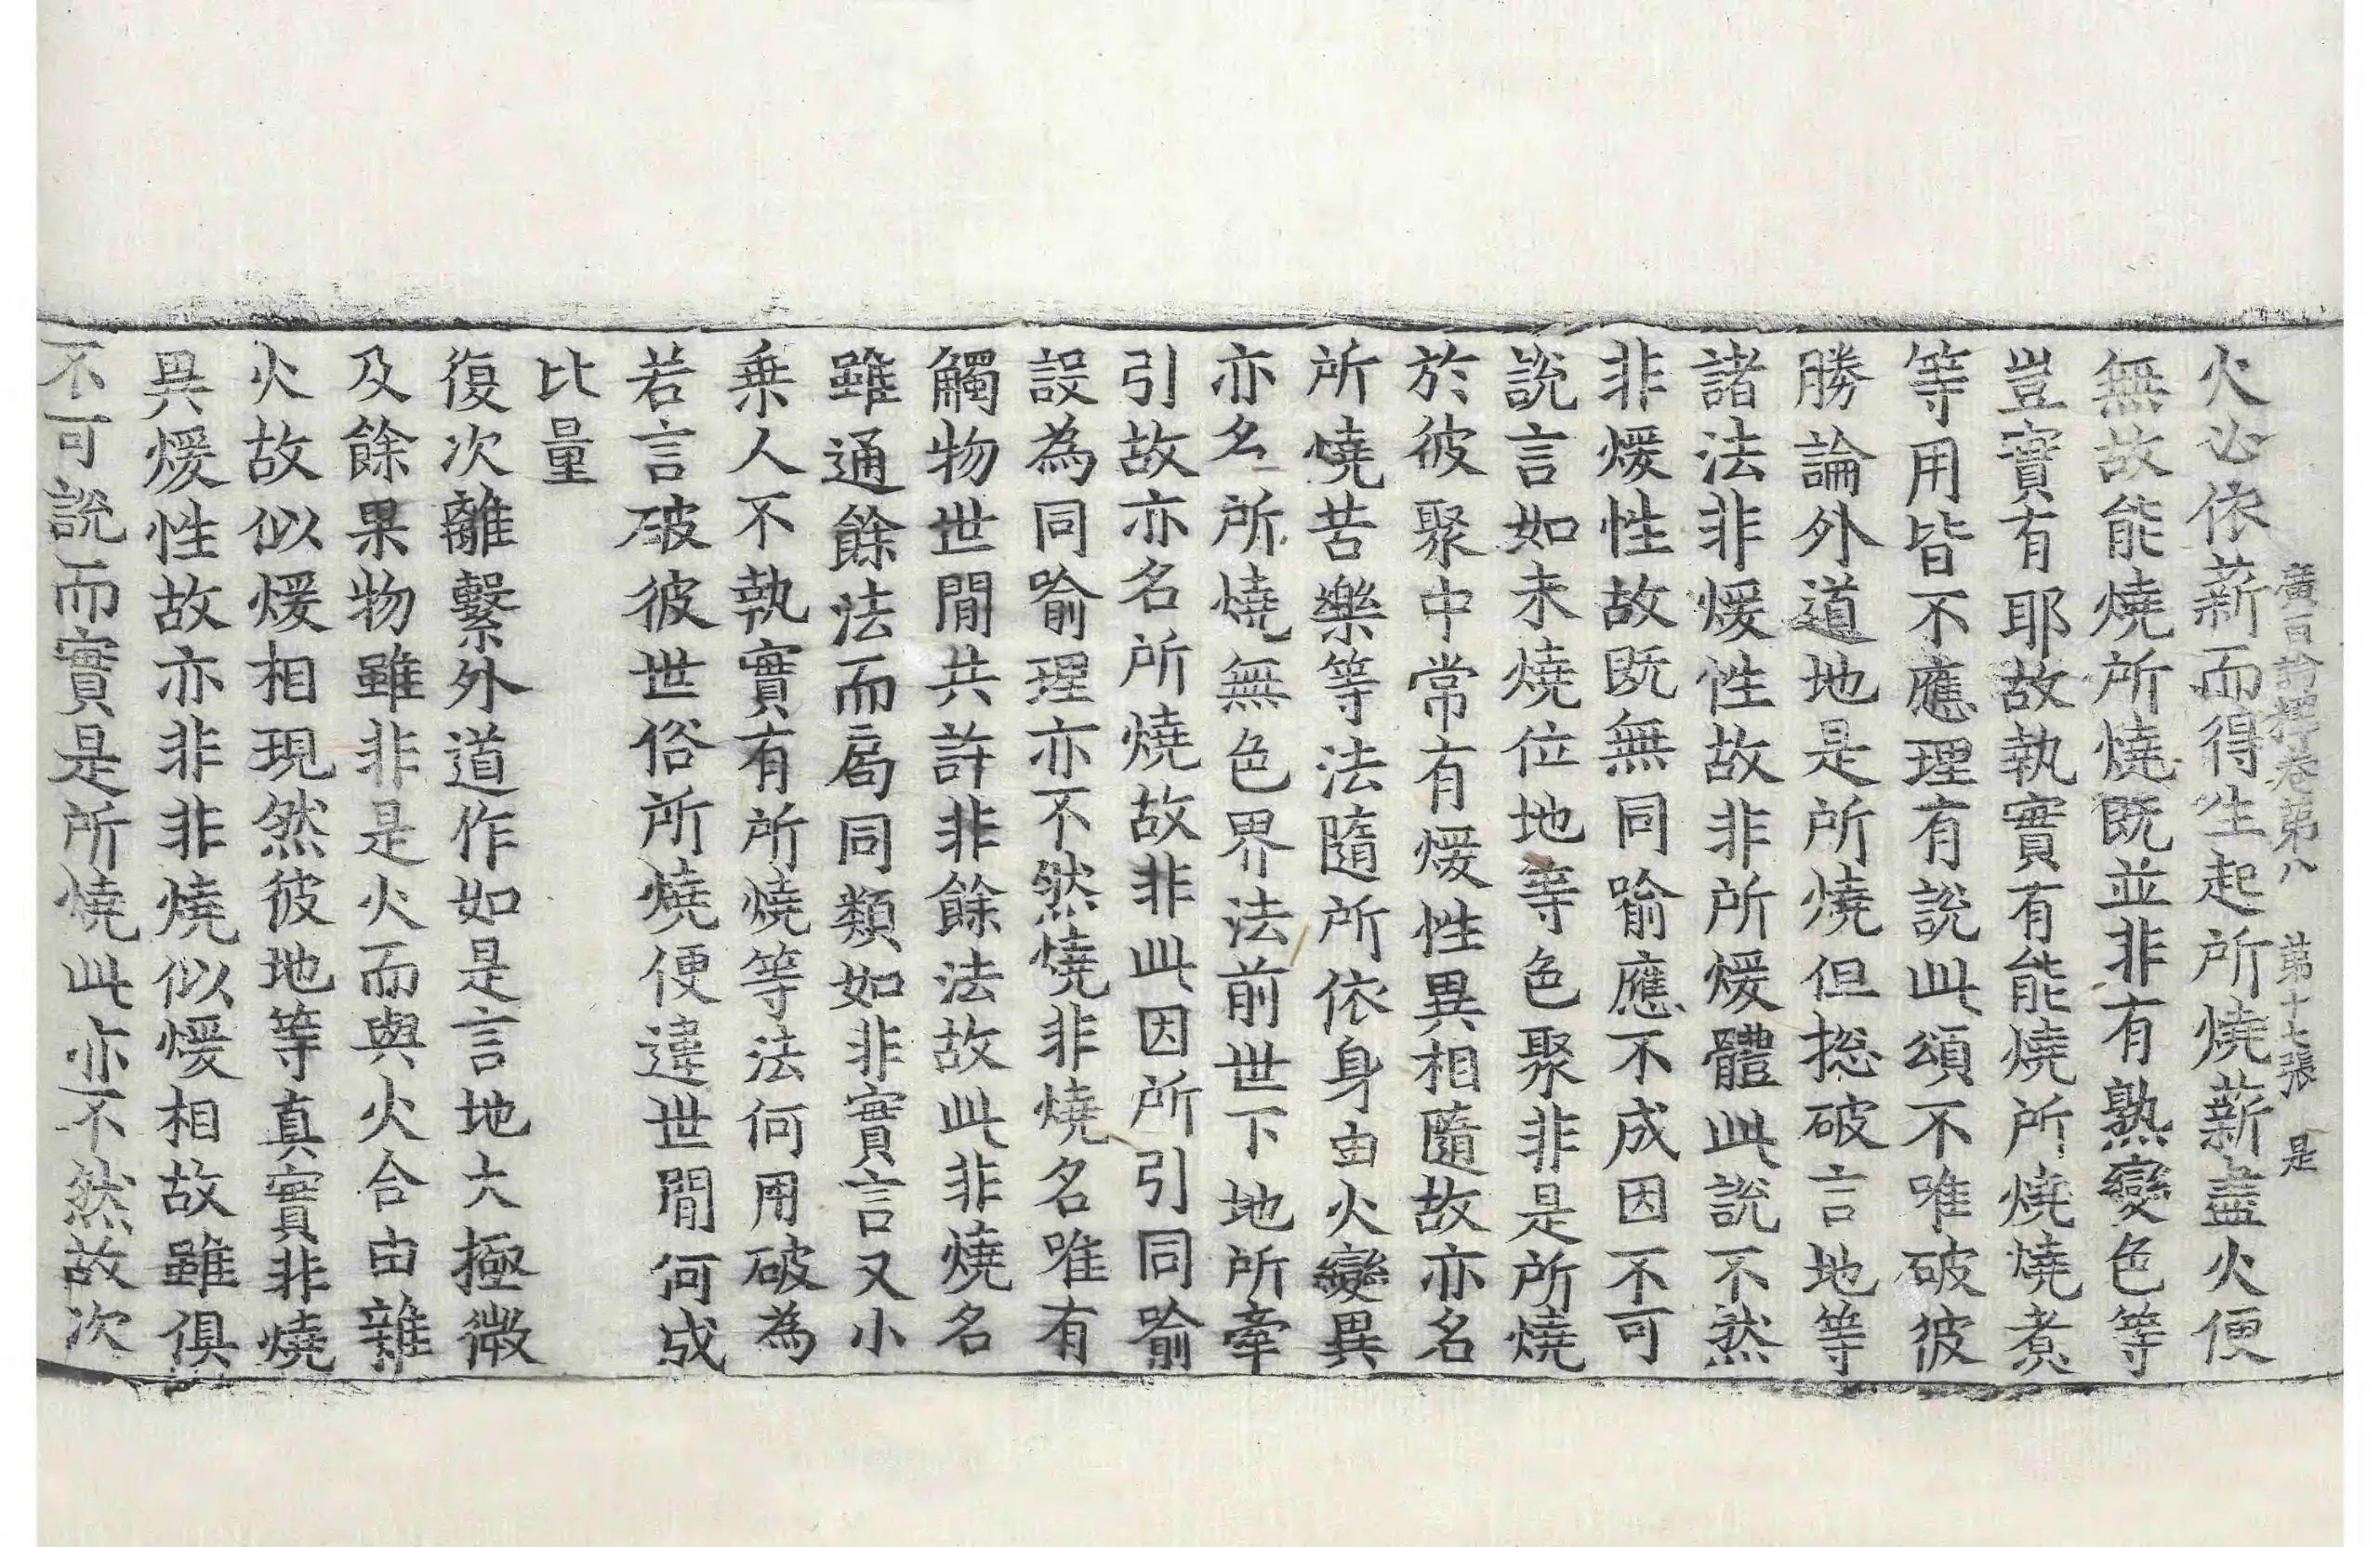 廣百論釋卷第八 第十七張 是
火必依薪而得生起所燒薪盡火便
無故能燒所燒旣並非有熟變色等
豈實有耶故執實有能燒所燒燒煮
等用皆不應理有說此頌不唯破彼
勝論外道地是所燒但捴破言地等
諸法非煖性故非所煖體此說不然
非煖性故旣無同喻應不成因不可
說言如未燒位地等色聚非是所燒
於彼聚中常有煖性異相隨故亦名
所燒苦樂等法隨所依身由火變異
亦名所燒無色界法前世下地所牽
引故亦名所燒故非此因所引同喻
設為同喻理亦不然燒非燒名唯有
觸物世間共許非餘法故此非燒名
雖通餘法而局同類如非實言又小
乗人不執實有所燒等法何用破為
若言破彼世俗所燒便違世間何成
比量
復次離繫外道作如是言地大極微
及餘果物雖非是火而與火合由雜
火故似煖相現然彼地等真實非燒
異煖性故亦非非燒似煖相故雖俱
不可說而實是所燒此亦不然故次